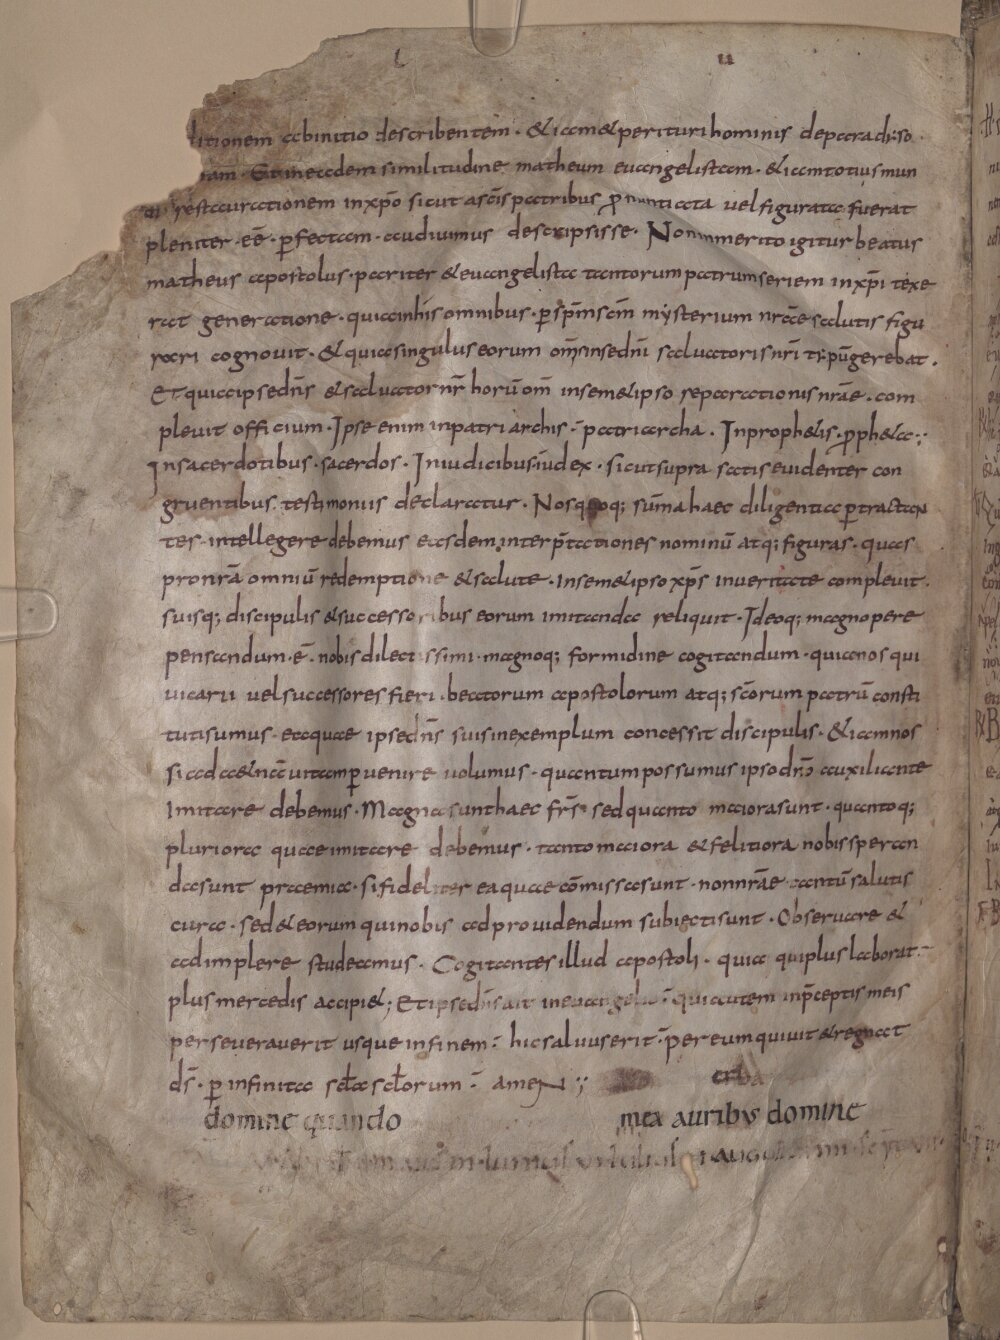 litionem ab initio describentem · & iam & perituri hominis de paradiso
iam · Et in eadem similitudine matheum euangelistam · & iam totius mun
restaurationem in xp̄o sicut a sc̄is patribus ꝓnuntiata uel figurata fuerat
pleniter · eē · ꝑfectam · audiuimus descripsisse · Non inmerito igitur beatus
matheus apostolus · pariter & euangelista tantorum patrum seriem in xp̄i texe
rat generatione · quia in his omnibus · ꝑ sp̄m sc̄m mysterium nr̄ae salutis figu
rari cognouit · & quia singulus eorum om̄s in se dn̄i saluatoris nr̄i tipū gerebat ·
Et quia ipse dn̄s & saluator nr̄ horū om̄ in sem&ipso reparationis nr̄ae · com
pleuit officium · Ipse enim in patriarchis · patriarcha · In proph&is · ꝓph&a ·
In sacerdotibus · sacerdos · In iudicibus · iudex · sicut supra satis euidenter con
gruentibus testimoniis declaratur · Nos quoq; sūma haec diligentia ꝑtractan
tes intellegere debemus easdem interp̄tationes nominū atq; figuras · quas
pro nr̄a omniū redemptione & salute · In sem&ipso xp̄s in ueritate compleuit ·
suisq; discipulis & successoribus eorum imitanda reliquit · Ideoq; magnopere
pensandum · ē · nobis dilectissimi · magnoq; formidine cogitandum · quia nos qui
uicarii uel successores fieri · beatorum apostolorum atq; sc̄orum patrū consti
tuti sumus · ea quae ipse dn̄s suis in exemplum concessit discipulis · & iam nos
si ad aet̄nā uitam ꝑuenire uolumus · quantum possumus ipso dn̄o auxiliante
Imitare debemus · Magna sunt haec fr̄s · sed quanto maiora sunt · quantoq;
pluriora quae imitare debemus · tanto maiora & felitiora nobis speran
da sunt praemia · si fideliter ea quae com̄issa sunt · non nr̄ae tantū salutis
cura · sed & eorum qui nobis ad prouidendum subiecti sunt · Obseruare &
adimplere studeamus · Cogitantes illud apostoli · quia qui plus laborat ·
plus mercedis accipi&; Et ipse dn̄s ait in euangelio · qui autem in p̄ceptis meis
perseuerauerit usque in finem · hic saluus erit · per eum qui uiuit & regnat
ds̄ · ꝑ infinita sc̄la sc̄lorum · amen ·;
erba
domine quando mea auribus domine